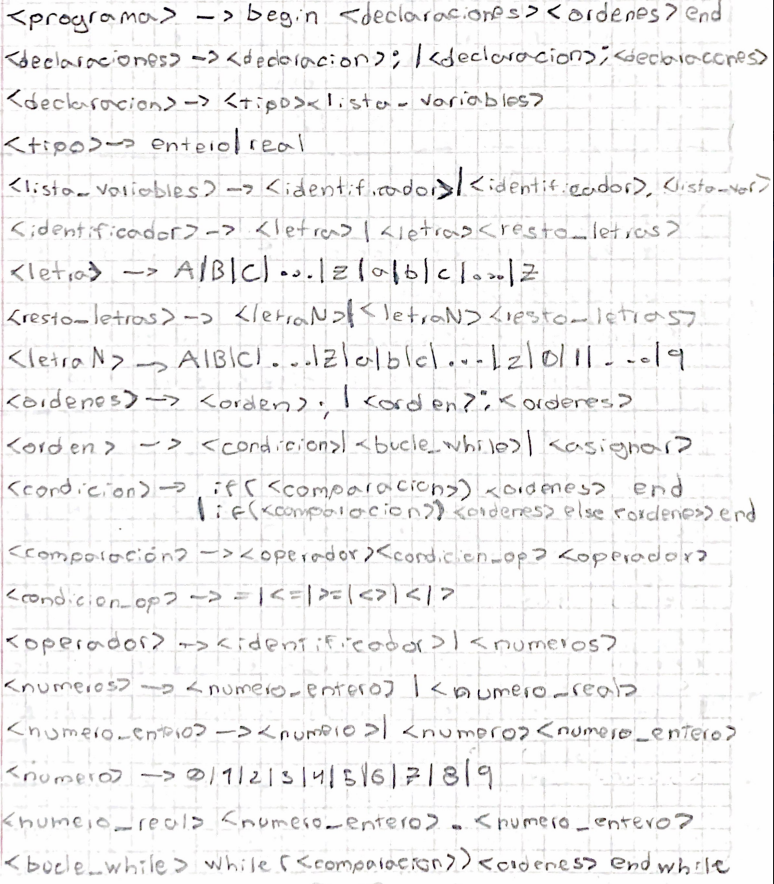 <programa> -> begin <declaraciones><ordenes> end
<declaraciones> -> <declaracion>; | <declaracion>;<declaracones>
<declaracion> -> <tipo><lista-variables>
<tipo> -> entero|real
<lista_variables> -> <identificador>|<identificador>, <lista-var>
<identificador> -> <letra> | <letra><resto_letras>
<letra> -> A|B|C|...|Z|a|b|c|...|z
<resto_letras> -> <letraN>|<letraN><resto_letras>
<letraN> -> A|B|C|...|Z|a|b|c|...|z|0|1|...|9
<ordenes> -> <orden>; | <orden>;<ordenes>
<orden> -> <condicion>|<bucle_while>|<asignar>
<condicion> -> if(<comparacion>) <ordenes> end
| if(<comparacion>) <ordenes> else <ordenes> end
<comparación> -> <operador><condicion_op> <operador>
<condicion_op> -> =|<=|>=|<>|<|>
<operador> -> <identificador>|<numeros>
<numeros> -> <numero_entero>|<numero_real>
<numero_entero> -> <numero>|<numero><numero_entero>
<numero> -> 0|1|2|3|4|5|6|7|8|9
<numero_real> <numero_entero>.<numero_entero>
<bucle_while> while (<comparacion>) <ordenes> endwhile